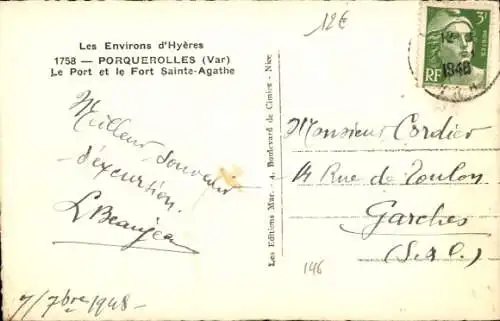 Les Environs d'Hyères
1758 — PORQUEROLLES (Var)
Le Port et le Fort Sainte-Agathe
Meilleur souvenir
d'excursion.
L Beaujean
7/7bre 1948-
Les Editions Mar. - 4, Boulevard de Cimiez - Nice
12€
3F
RF
1948
Monsieur Cordier
14 Rue de Toulon
Garches
(S&O.)
146